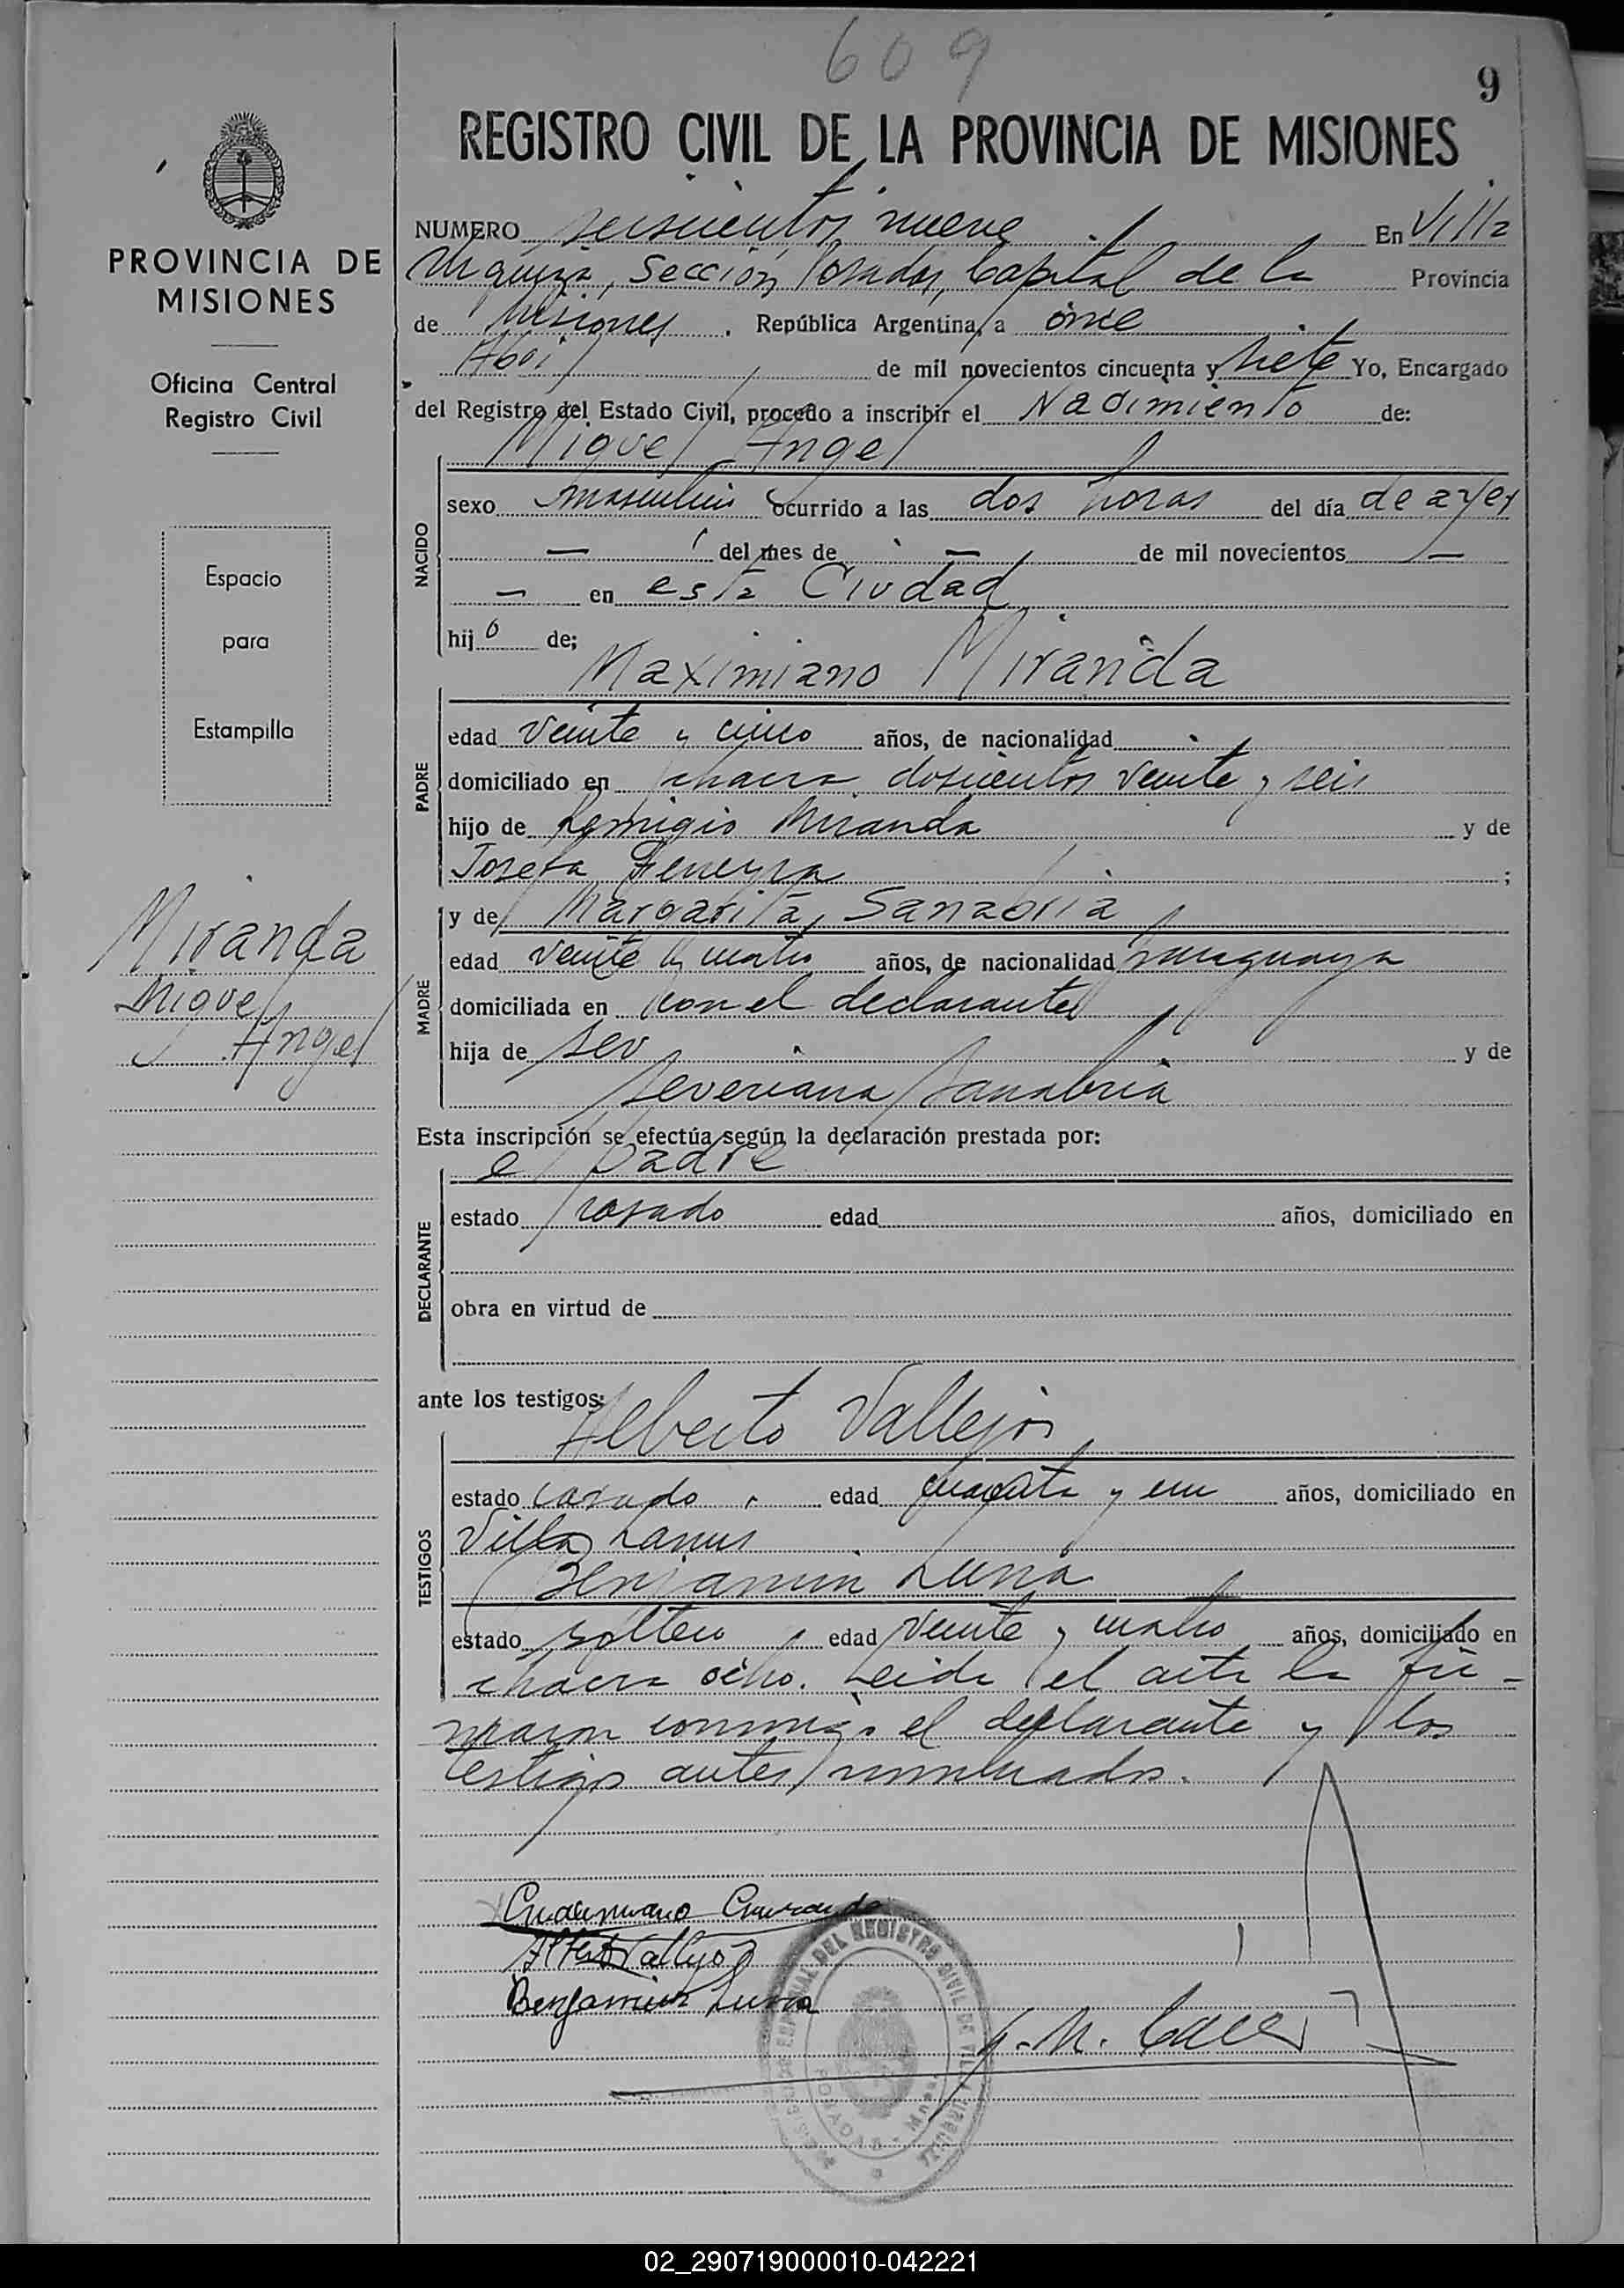 609
9
REGISTRO CIVIL DE LA PROVINCIA DE MISIONES
PROVINCIA DE
MISIONES
Oficina Central
Registro Civil
Espacio
para
Estampilla
Miranda
Miguel
Angel
NUMERO seiscientos nueve En Villa
Urquiza, Sección Posadas, Capital de la Provincia
de Misiones, República Argentina, a once
Abril de mil novecientos cincuenta y siete Yo, Encargado
del Registro del Estado Civil, procedo a inscribir el Nacimiento de:
Miguel Angel
NACIDO
sexo masculino ocurrido a las dos horas del día de ayer
— del mes de — de mil novecientos —
— en esta Ciudad
hijo de;
Maximiano Miranda
PADRE
edad veinte y cinco años, de nacionalidad
domiciliado en chacra doscientos veinte y seis
hijo de Remigio Miranda y de
Josefa Ferreyra ;
MADRE
y de Margarita Sanabria
edad veinte y cuatro años, de nacionalidad paraguaya
domiciliada en con el declarante
hija de sev y de
Severiana Sanabria
Esta inscripción se efectúa según la declaración prestada por:
el padre
DECLARANTE
estado casado edad años, domiciliado en
obra en virtud de
ante los testigos:
Alberto Vallejos
TESTIGOS
estado casado edad cuarenta y un años, domiciliado en
Villa Lanus
Benjamin Luna
estado soltero edad veinte y cuatro años, domiciliado en
chacra ocho. Leida el acta la fir-
maron conmigo el declarante y los
testigos antes nombrados.
Alberto Vallejos
Benjamin Luna
DEL REGISTRO CIVIL DE VILLA URQUIZA
POSADAS - Mnes.
02_290719000010-042221